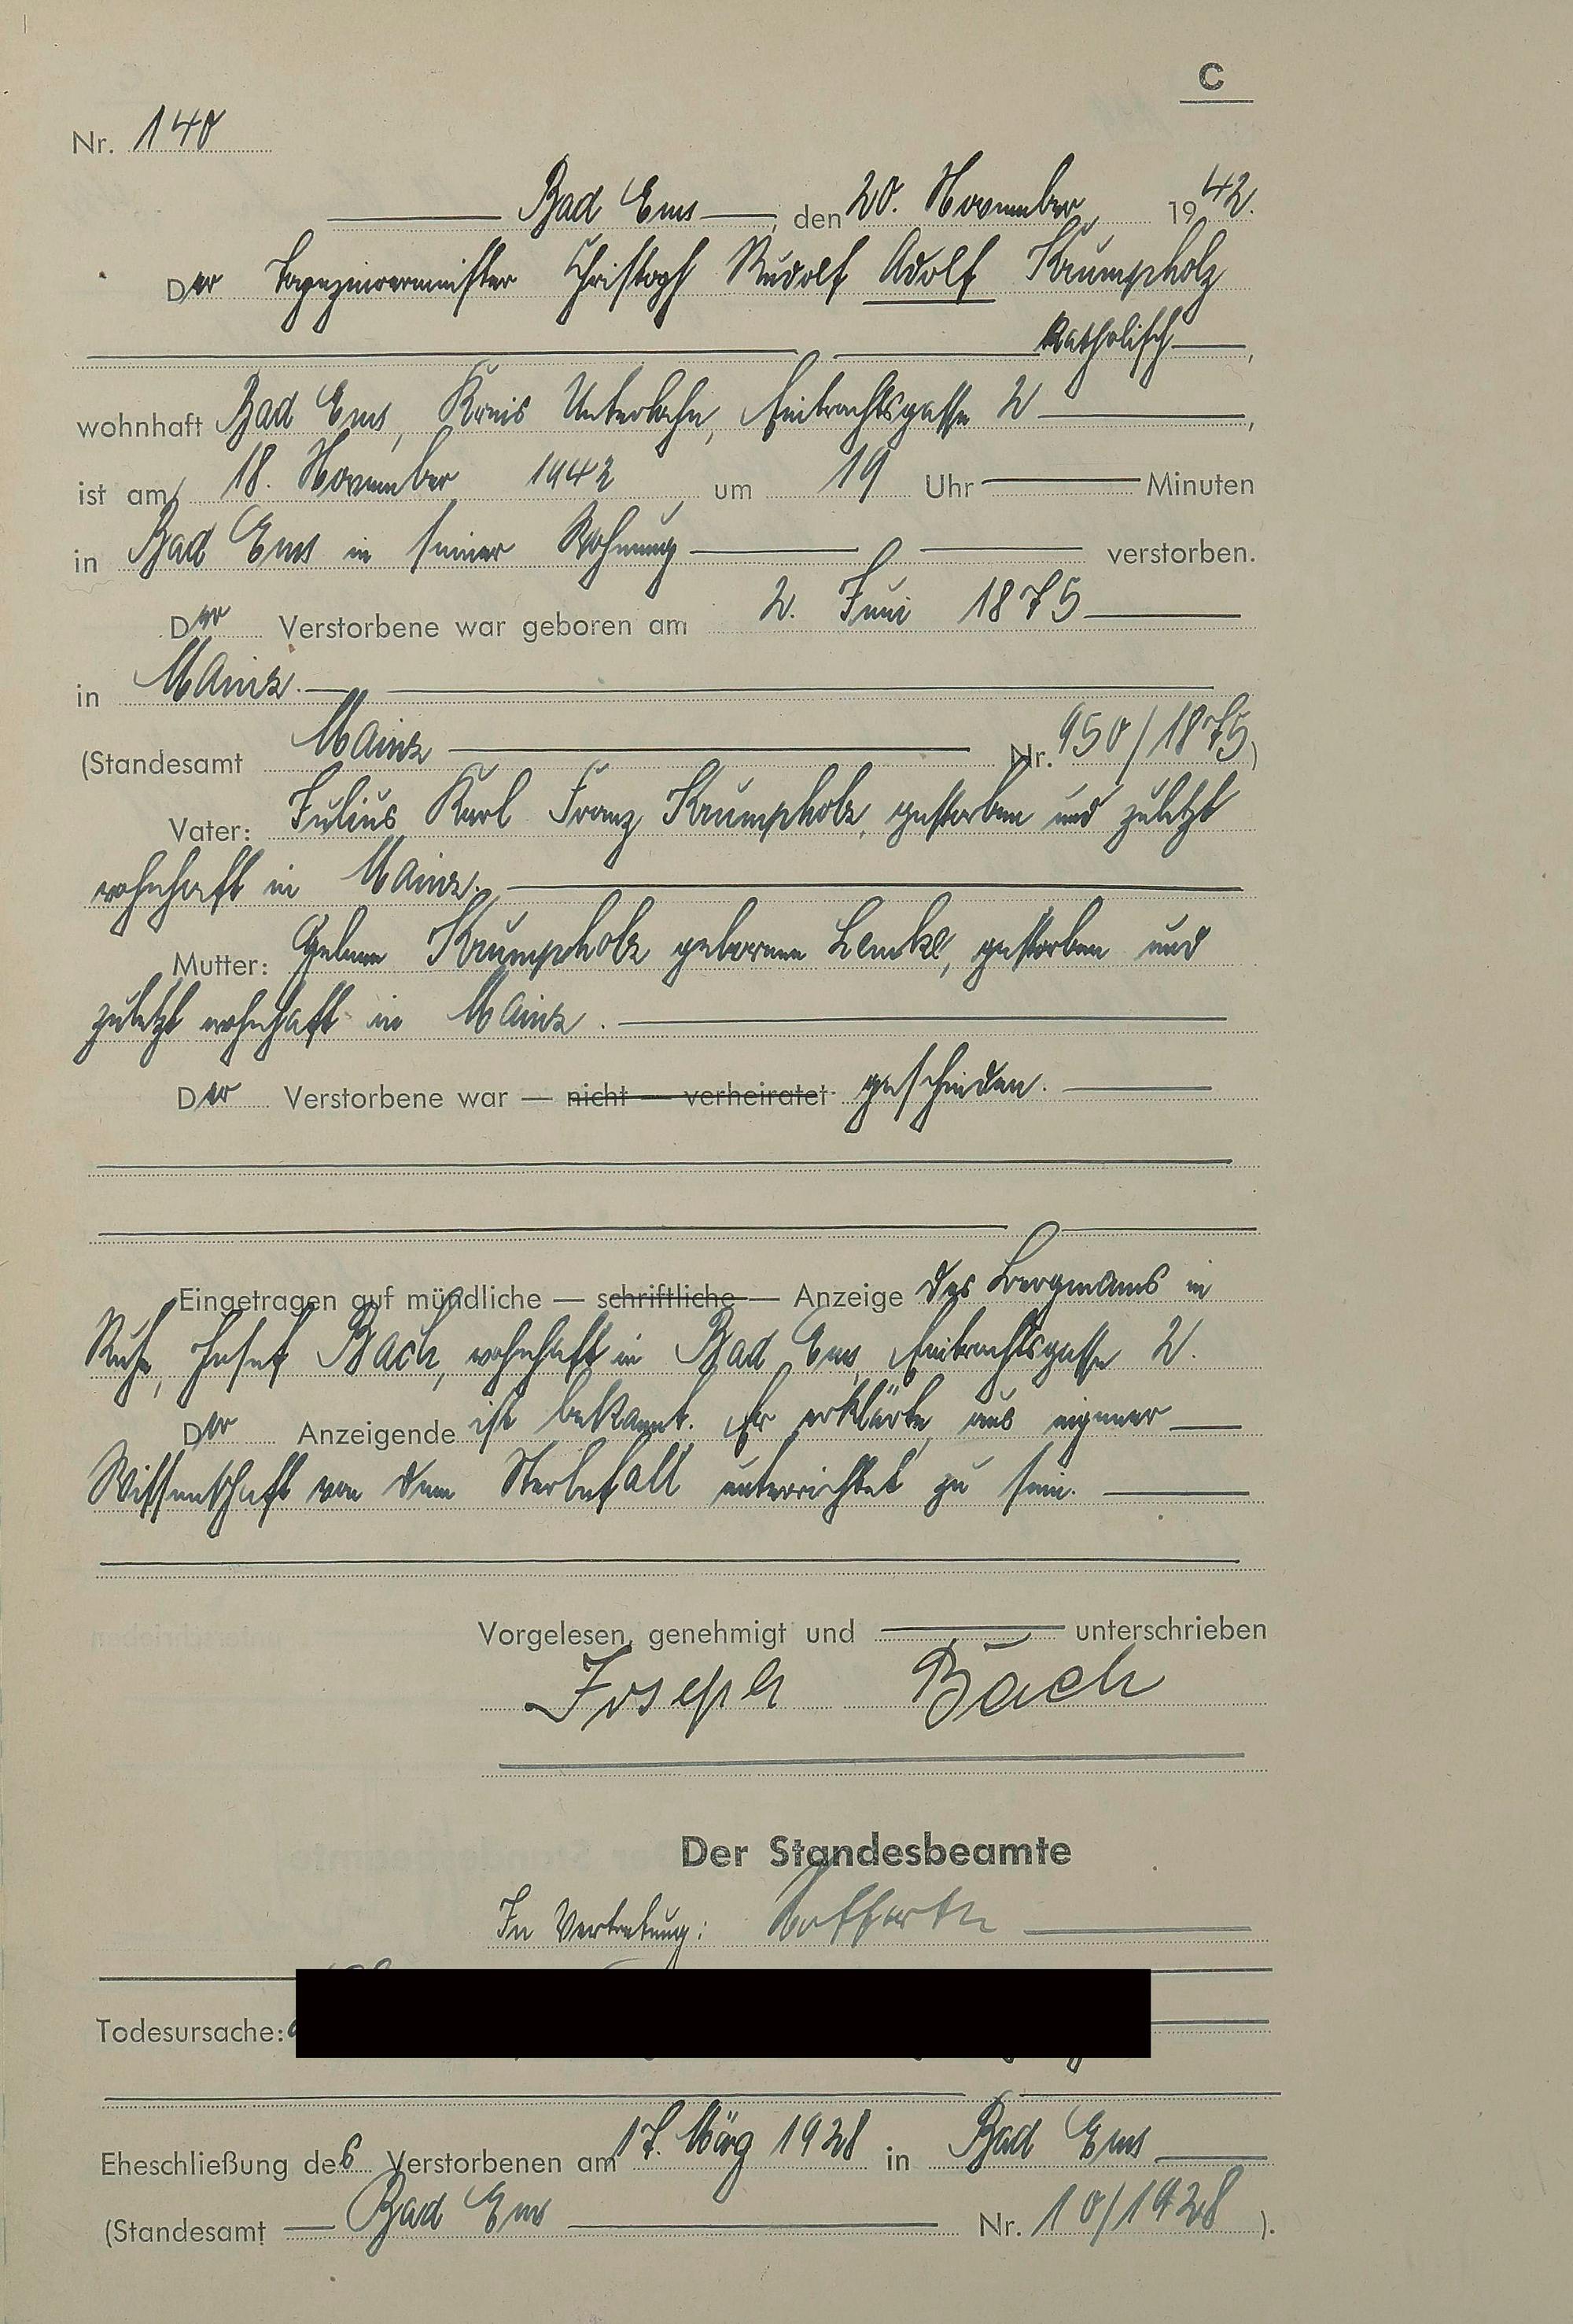 C
Nr. 140
Bad Ems, den 20. November 1942.
Der Tapezierermeister Christoph Rudolf Adolf Krumpholz
katholisch,
wohnhaft Bad Ems, Kreis Unterlahn, Eintrachtsgasse 2,
ist am 18. November 1942 um 19 Uhr Minuten
in Bad Ems in seiner Wohnung verstorben.
Der Verstorbene war geboren am 2. Juni 1875
in Mainz.
(Standesamt Mainz Nr. 950/1875)
Vater: Julius Karl Franz Krumpholz, gestorben und zuletzt
wohnhaft in Mainz.
Mutter: Krumpholz geborene Lemke, gestorben und
zuletzt wohnhaft in Mainz.
Der Verstorbene war — nicht — verheiratet geschieden.
Eingetragen auf mündliche — schriftliche — Anzeige des Bergmanns in
Ruhe, Josef Bach, wohnhaft in Bad Ems, Eintrachtsgasse 2.
Der Anzeigende ist bekannt. Er erklärte, aus eigener
Wissenschaft von dem Sterbefall unterrichtet zu sein.
Vorgelesen, genehmigt und unterschrieben
Joseph Bach
Der Standesbeamte
In Vertretung:
Todesursache:
Eheschließung des Verstorbenen am 17. März 1928 in Bad Ems
(Standesamt Bad Ems Nr. 10/1928).